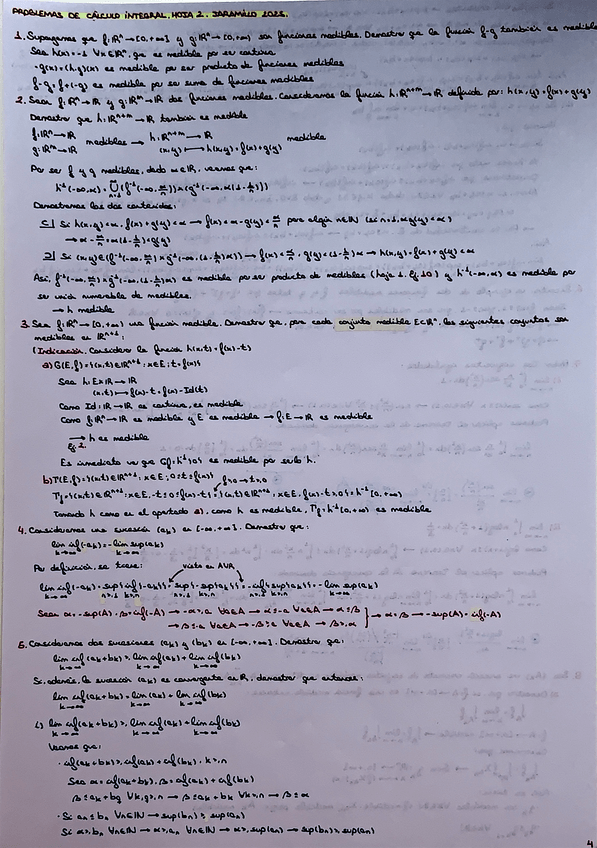 PROBLEMAS DE CÁLCULO INTEGRAL, HOJA 2. JARAMILLO 2025.
1. Supongamos que f: ℝⁿ → [0,+∞] y g: ℝⁿ → [0,+∞) son funciones medibles. Demostrar que la función f-g también es medible
Sea h(x) = -1 ∀x∈ℝⁿ, que es medible por ser continua
-g(x) = (h·g)(x) es medible por ser producto de funciones medibles
f-g = f+(-g) es medible por ser suma de funciones medibles
2. Sean f: ℝⁿ → ℝ y g: ℝᵐ → ℝ dos funciones medibles. Consideramos la función h: ℝⁿ⁺ᵐ → ℝ definida por: h(x,y) = f(x)+g(y)
Demostrar que h: ℝⁿ⁺ᵐ → ℝ también es medible
f: ℝⁿ → ℝ
g: ℝᵐ → ℝ medibles → h: ℝⁿ⁺ᵐ → ℝ medible
(x,y) ↦ h(x,y) = f(x)+g(y)
Por ser f y g medibles, dado α∈ℝ, veamos que:
Demostramos los dos contenidos:
⊆| Si h(x,y) < α, f(x)+g(y) < α → f(x) < α-g(y)
para algún n∈ℕ
→ h(x,y) = f(x)+g(y) < α
es medible por ser producto de medibles (hoja 1, Ej 10) y h⁻¹(-∞,α) es medible por
ser unión numerable de medibles.
→ h medible
3. Sea f: ℝⁿ → [0,+∞) una función medible. Demostrar que, para cada conjunto medible E⊂ℝⁿ, los siguientes conjuntos son
medibles en ℝⁿ⁺¹:
(Indicación. Considera la función h(x,t) = f(x)-t)
a) G(E,f) = {(x,t)∈ℝⁿ⁺¹: x∈E; t=f(x)}
Sea h: E×ℝ → ℝ
(x,t) ↦ f(x)-t = f(x)-Id(t)
Como Id: ℝ → ℝ es continua, es medible
Como f: ℝⁿ → ℝ es medible y E es medible → f: E → ℝ es medible
→ h es medible
Ej 2.
Es inmediato ver que Gf = h⁻¹{0} es medible por serlo h.
b) Γ(E,f) = {(x,t)∈ℝⁿ⁺¹: x∈E, 0≤t≤f(x)}
Tomando h como en el apartado a), como h es medible, Γf = h⁻¹[0,+∞) es medible
4. Consideramos una sucesión (ak) en [-∞,+∞]. Demostrar que:
lim inf(-ak) = -lim sup(ak)
k→∞ k→∞
Por definición, se tiene: Visto en AVR
Sean α = -sup(A), β = inf(-A)
→ α = β → -sup(A) = inf(-A)
5. Consideramos dos sucesiones (ak) y (bk) en [-∞,+∞]. Demostrar que:
lim inf(ak+bk) ≥ lim inf(ak) + lim inf(bk)
k→∞ k→∞ k→∞
Si, además, la sucesión (ak) es convergente en ℝ, demostrar que entonces:
lim inf(ak+bk) = lim(ak) + lim inf(bk)
k→∞ k→∞ k→∞
i) lim inf(ak+bk) ≥ lim inf(ak) + lim inf(bk)
k→∞ k→∞ k→∞
Veamos que:
· inf(ak+bk) ≥ inf(ak) + inf(bk), k≥n
Sea α = inf(ak+bk), β = inf(ak) + inf(bk)
· Si an ≤ bn ∀n∈ℕ → sup(bn) ≥ sup(an)
Si α ≥ bn ∀n∈ℕ → α ≥ an ∀n∈ℕ → α ≥ sup(an) → sup(bn) ≥ sup(an)
4